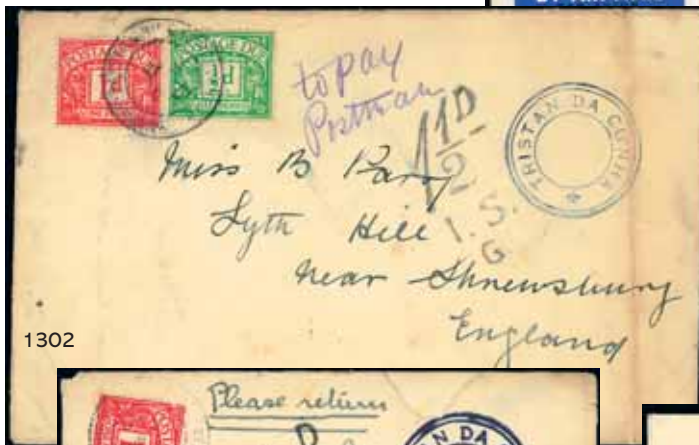 POSTAGE DUE
1D
POSTAGE DUE
½D
to pay
Postman
1½D
TRISTAN DA CUNHA
Miss B Parry
Lyth Hill
near Shrewsbury
England
1302
Please return